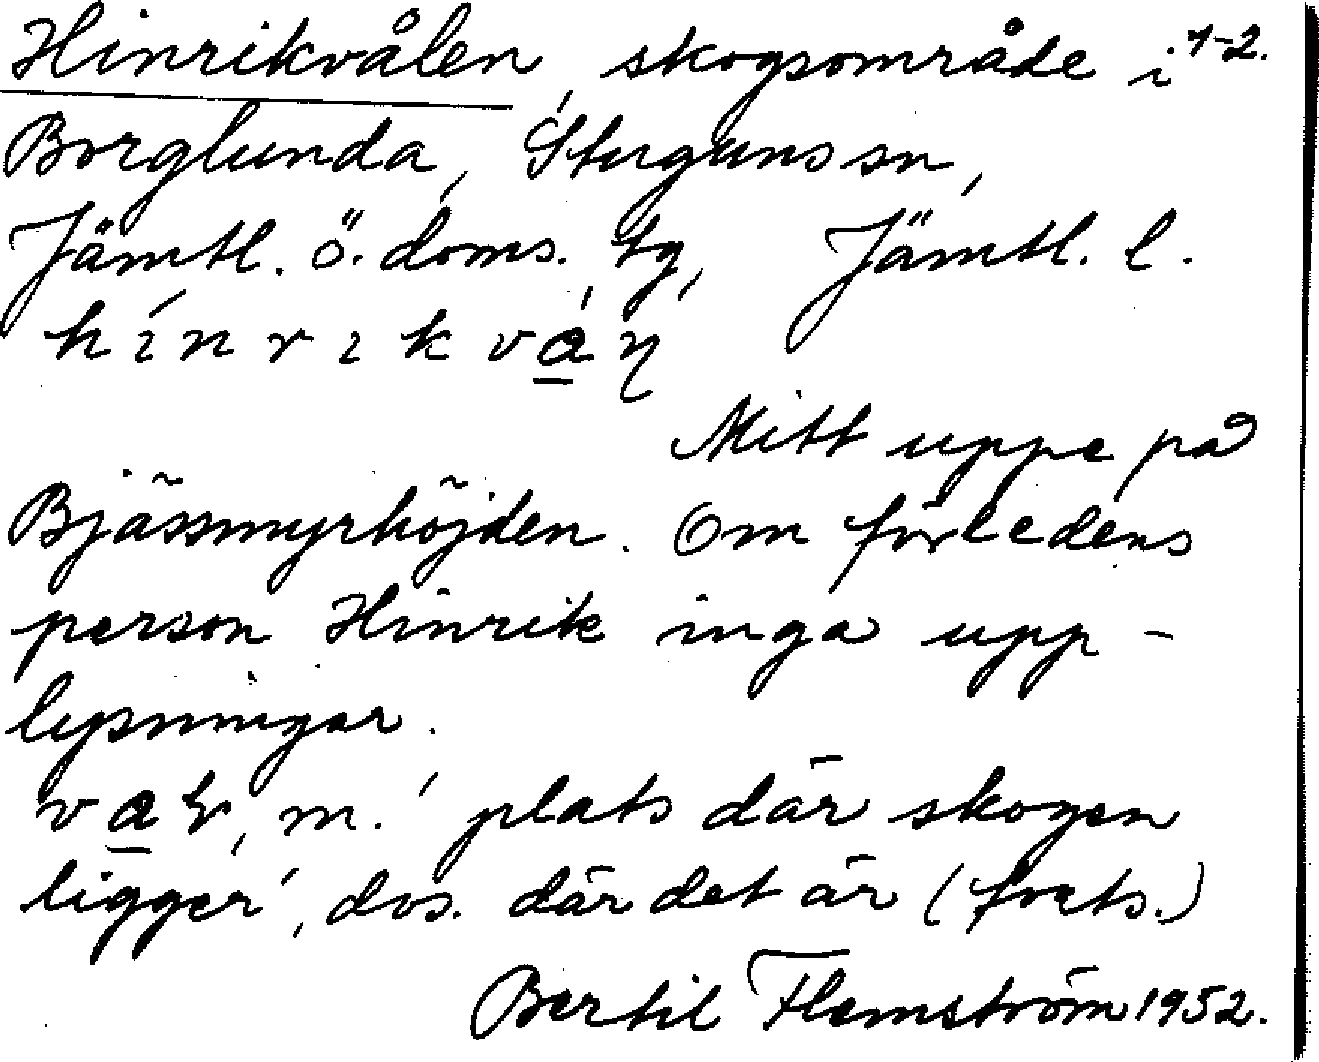 Hinrikvålen, skogsområde i 1-2.
Borglunda, Stuguns sn,
Jämtl. ö. doms. tg, Jämtl. l.
Mitt uppe på
Bjässmyrhöjden. Om förledens
person Hinrik inga upp-
lysningar.
m. 'plats där skogen
ligger', dvs. där det är (forts.)
Bertil Flemström 1952.